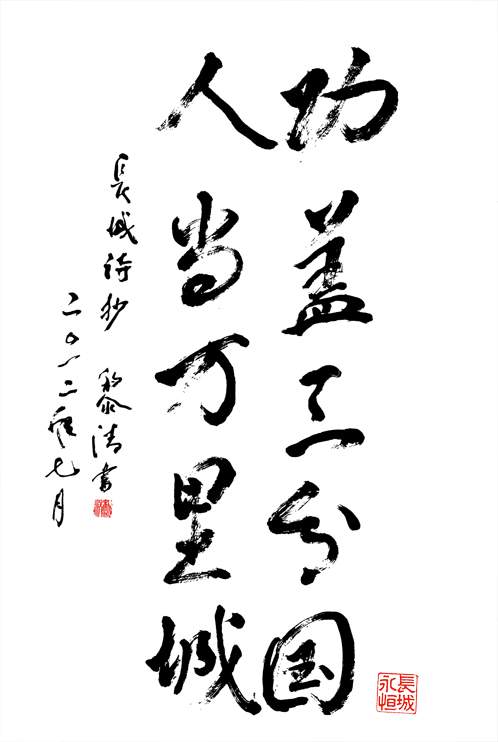 功盖三分国
人当万里城
长城诗抄 黎清书
二〇一二年七月
長城
永恒